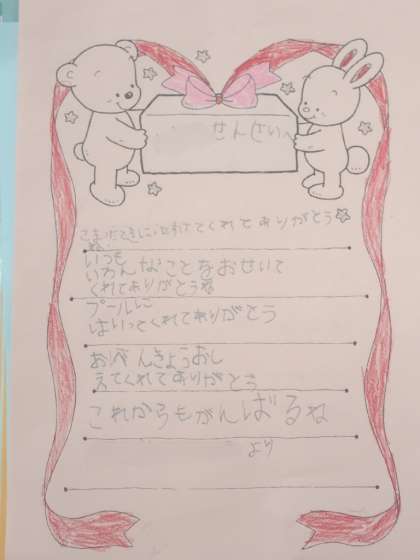 せんせいへ
こまったときにたすけてくれてありがとう
ね
いつも
いろんなことをおせいて
くれてありがとうね
プールに
はいってくれてありがとう
おべんきょうおし
えてくれてありがとう
これからもがんばるね
より